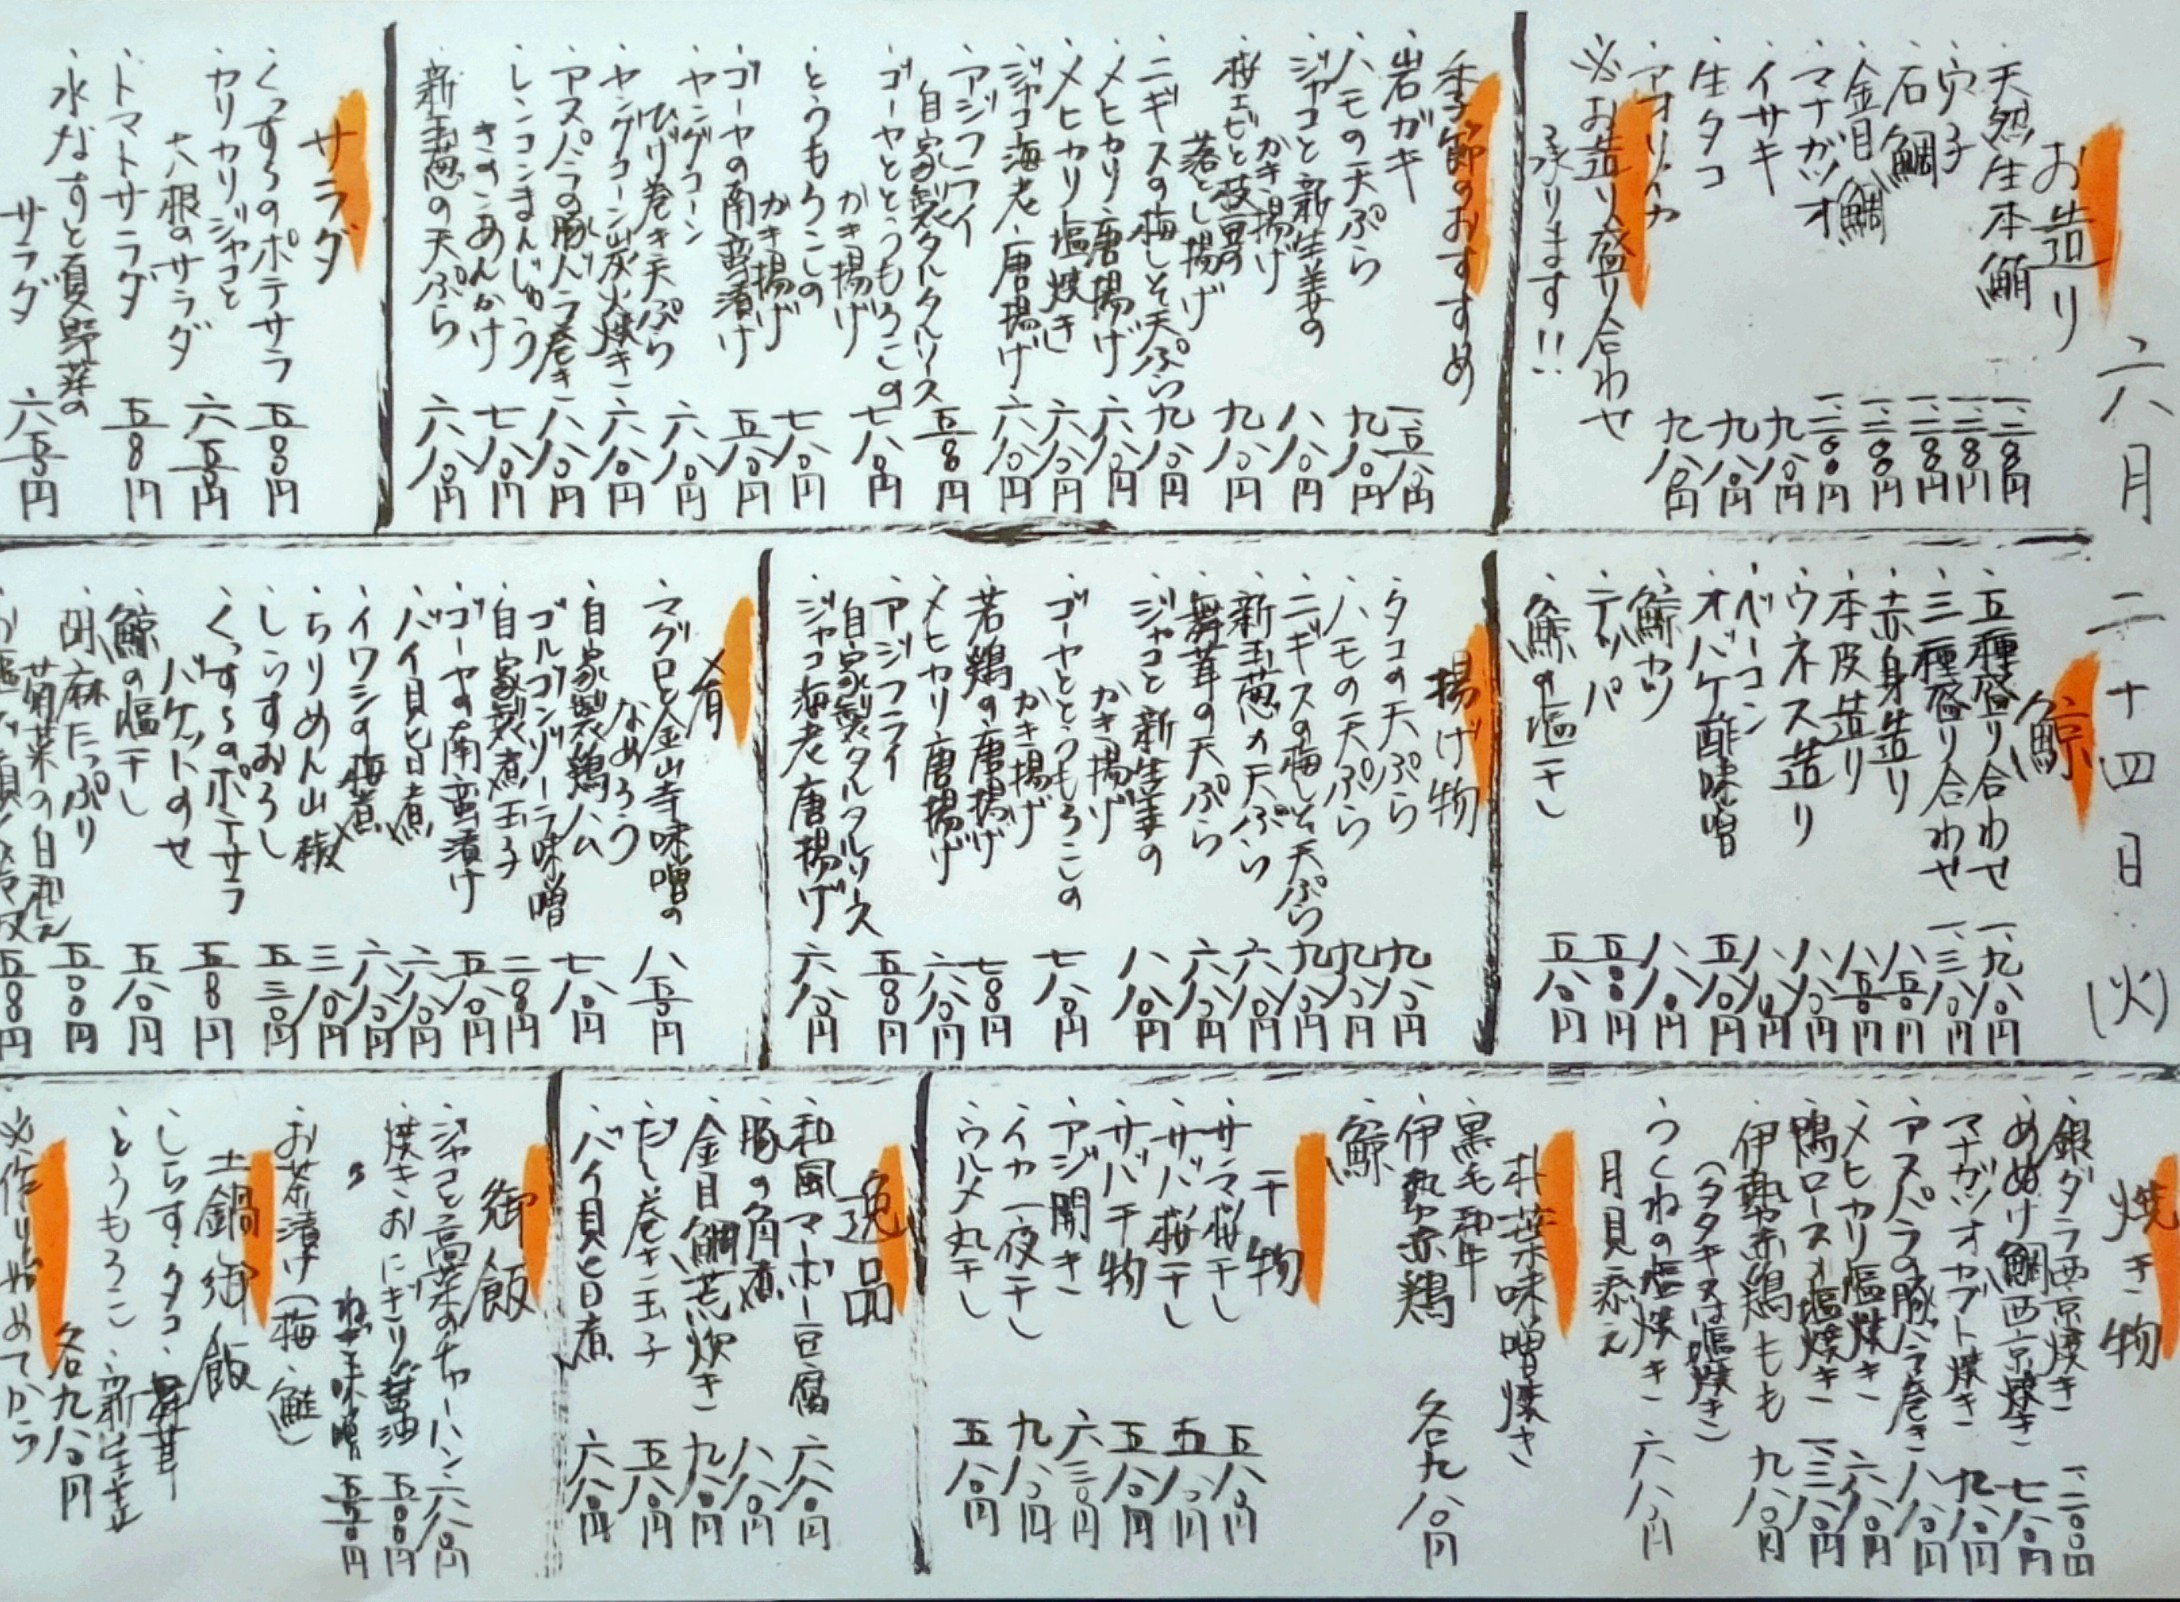 六月二十四日(火)
お造り
・天然生本鮪 一、二八〇円
・穴子 一、二八〇円
・石鯛 一、二八〇円
・金目鯛 一、二八〇円
・マナガツオ 一、二八〇円
・イサキ 九八〇円
・生タコ 九八〇円
・アオリイカ 九八〇円
※お造り盛り合わせ
承ります!!
季節のおすすめ
・岩ガキ 一、五八〇円
・ハモの天ぷら 九八〇円
・ジャコと新生姜の
かき揚げ 八八〇円
・桜エビと枝豆の
落とし揚げ 九八〇円
・ニギスの梅しそ天ぷら 九八〇円
・メヒカリ唐揚げ 六八〇円
・メヒカリ塩焼き 六八〇円
・ジャコ海老唐揚げ 六八〇円
・アジフライ
自家製タルタルソース 五八〇円
・ゴーヤととうもろこしの
かき揚げ 七八〇円
・とうもろこしの
かき揚げ 七八〇円
・ゴーヤの南蛮漬け 五八〇円
・ヤングコーン
ひげ巻き天ぷら 六八〇円
・ヤングコーン炭火焼き 六八〇円
・アスパラの豚バラ巻き 八八〇円
・レンコンまんじゅう
きのこあんかけ 七八〇円
・新玉葱の天ぷら 六八〇円
サラダ
・くっすらのポテサラ 五八〇円
・カリカリジャコと
大根のサラダ 六五〇円
・トマトサラダ 五八〇円
・水なすと夏野菜の
サラダ 六五〇円
鯨
・五種盛り合わせ 一、九八〇円
・三種盛り合わせ 一、三八〇円
・赤身造り 八五〇円
・本皮造り 八五〇円
・ウネス造り 八八〇円
・ベーコン 八八〇円
・オバケ酢味噌 五八〇円
・鯨カツ 八八〇円
・テッパ 五八〇円
・鯨の塩干し 五八〇円
揚げ物
・タコの天ぷら 九八〇円
・ハモの天ぷら 九八〇円
・ニギスの梅しそ天ぷら 九八〇円
・新玉葱の天ぷら 六八〇円
・舞茸の天ぷら 六八〇円
・ジャコと新生姜の
かき揚げ 八八〇円
・ゴーヤととうもろこしの
かき揚げ 七八〇円
・若鶏の唐揚げ 七八〇円
・メヒカリ唐揚げ 六八〇円
・アジフライ
自家製タルタルソース 五八〇円
・ジャコ海老唐揚げ 六八〇円
肴
・マグロと金山寺味噌の
なめろう 八五〇円
・自家製鶏ハム 七八〇円
ゴルゴンゾーラ味噌
・自家製煮玉子 二八〇円
・ゴーヤの南蛮漬け 五八〇円
・バイ貝旨煮 六八〇円
・イワシの梅煮 六八〇円
・ちりめん山椒 三八〇円
・しらすおろし 五三〇円
・くっすらのポテサラ
バケットのせ 五八〇円
・鯨の塩干し 五八〇円
・胡麻たっぷり
菊菜の白和え 五〇〇円
五八〇円
焼き物
・銀ダラ西京焼き 一、二〇〇円
・あぬけ鯛西京焼き 七八〇円
・マナガツオカブト焼き 九八〇円
・アスパラの豚バラ巻き 八八〇円
・メヒカリ塩焼き 六八〇円
・鴨ロース塩焼き 一、三八〇円
・伊勢赤鶏もも 九八〇円
(タタキ又は塩焼き)
・つくねの塩焼き
月見添え 六八〇円
朴葉味噌焼き
・黒毛和牛
・伊勢赤鶏 各九八〇円
・鯨
干物
・サンマ桜干し 五八〇円
・サバ桜干し 五八〇円
・サバ干物 五八〇円
・アジ開き 六三〇円
・イカ一夜干し 九八〇円
・ウルメ丸干し 五八〇円
逸品
・和風マーボー豆腐 六八〇円
・豚の角煮 八八〇円
・金目鯛荒炊き 九八〇円
・だし巻き玉子 五八〇円
・バイ貝旨煮 六八〇円
御飯
・ジャコと高菜のチャーハン 六八〇円
・焼きおにぎり醤油 五〇〇円
〃 ねぎ味噌 五五〇円
・お茶漬け(梅・鮭)
土鍋御飯
・しらす・タコ・舞茸
・とうもろこし・新生姜
各九八〇円
※作り始めてから